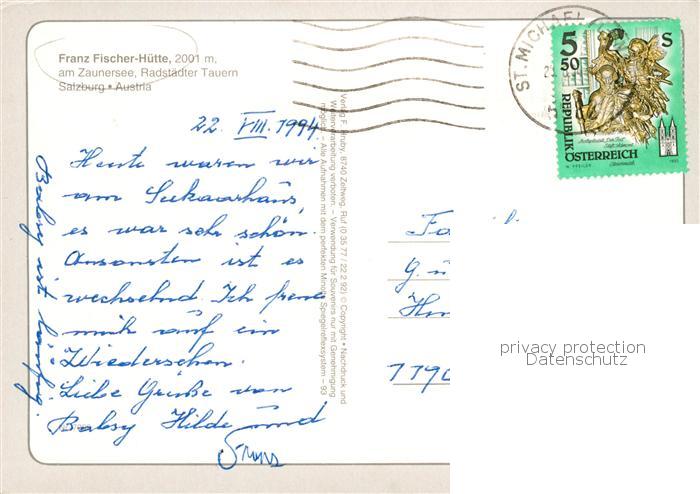 Franz Fischer-Hütte, 2001 m,
am Zaunersee, Radstädter Tauern
Salzburg • Austria
ST. MICHAEL
5 50 S
REPUBLIK
ÖSTERREICH
22. VIII. 1994
Heute waren wir
am Seekaarhaus,
es war sehr schön.
Ansonsten ist es
wechselnd. Ich freue
mich auf ein
Wiedersehen.
Liebe Grüße von
Babsy Hilde und
Franz
Verlag F. Hruby, 8740 Zeltweg, Ruf (0 35 77 / 22 2 92) © Copyright • Nachdruck und
Weiterverarbeitung verboten. – Verwendung für Souvenirs nur mit Genehmigung
möglich. – Alle Aufnahmen mit dem perfekten Minolta Spiegelreflexsystem – 93
privacy protection
Datenschutz